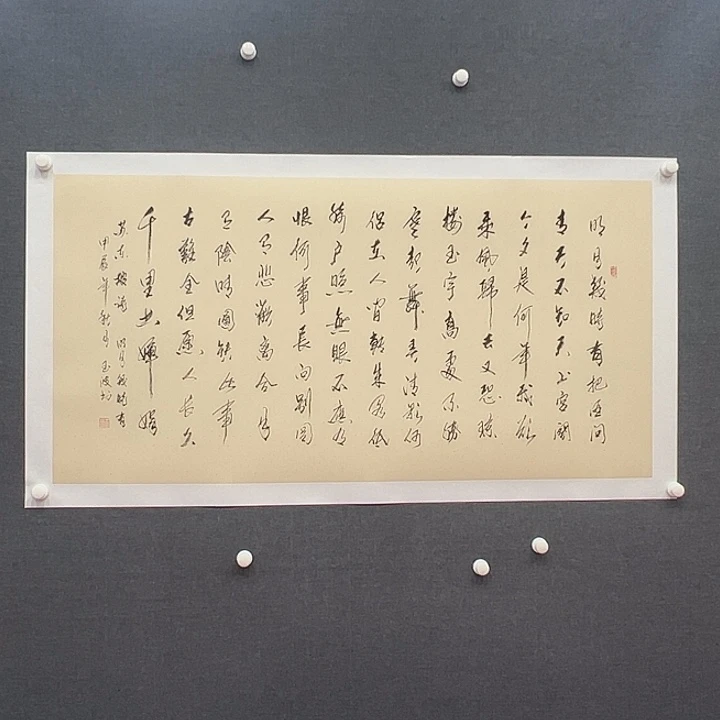 明月幾時有把酒問
青天不知天上宮闕
今夕是何年我欲
乘風歸去又恐瓊
樓玉宇高處不勝
寒起舞弄清影何
似在人間轉朱閣低
綺戶照無眠不應有
恨何事長向別圓
人有悲歡離合月
有陰晴圓缺此事
古難全但願人長久
千里共嬋娟
苏东坡詞 明月幾時有
甲辰年秋月 玉波书